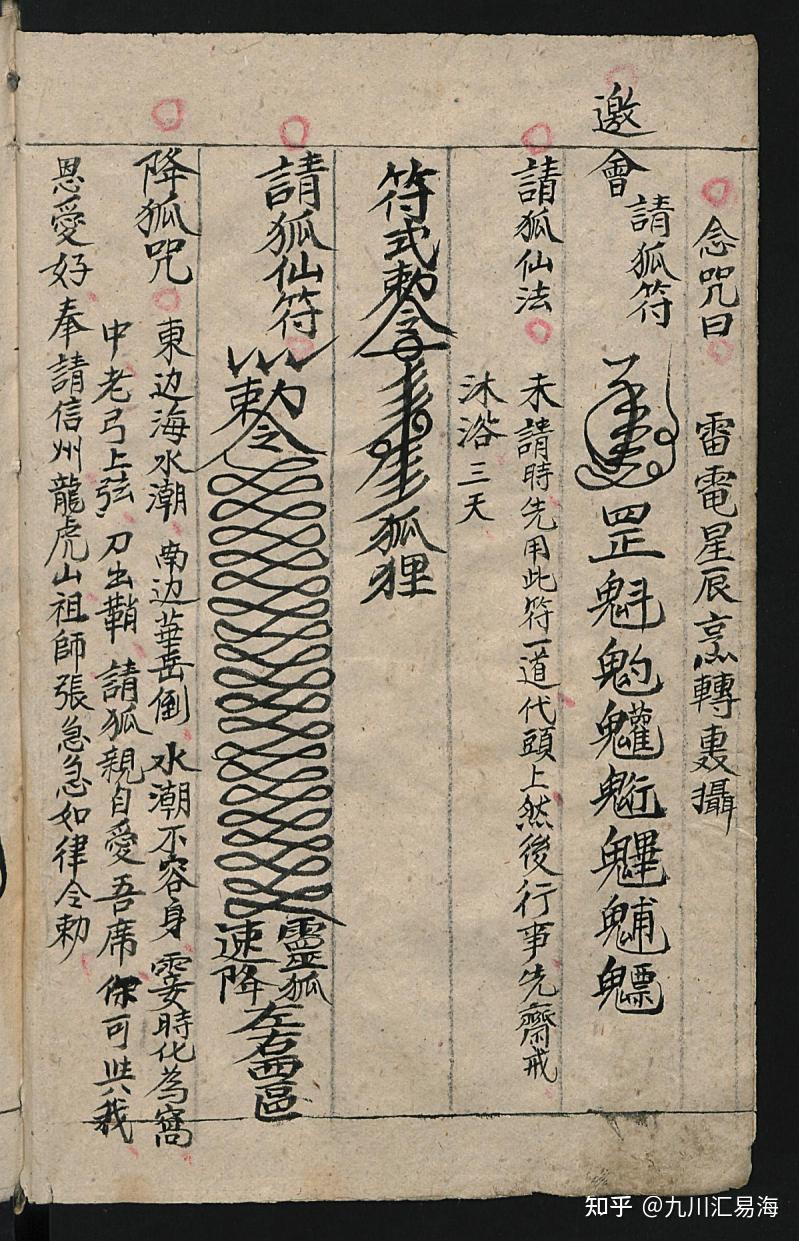 念咒曰 雷電星辰烹轉轟攝
邀會
請狐符
罡魁魡䰟魓魒
請狐仙法
未請時先用此符一道代頭上然後行事先齋戒
沐浴三天
符式勅令
狐狸
請狐仙符
勅令
靈狐
速降
左右西邑
降狐咒 東边海水潮 南边華岳倒 水潮不容身 霎時化為窩
中老弓上弦 刀出鞘 請狐親自愛吾席 保可與我
恩愛好 奉請信州龍虎山祖師張急急如律令勅
知乎 @九川汇易海